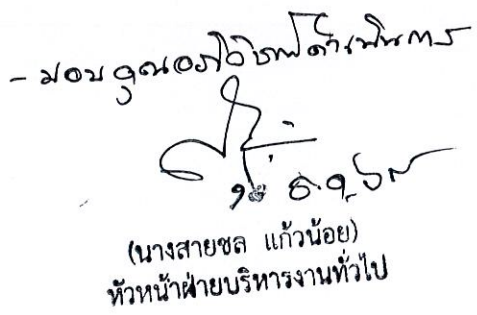 - มอบคุณอรวิชาพ์ดำเนินการ
ธ.ค. 68
(นางสายชล แก้วน้อย)
หัวหน้าฝ่ายบริหารงานทั่วไป